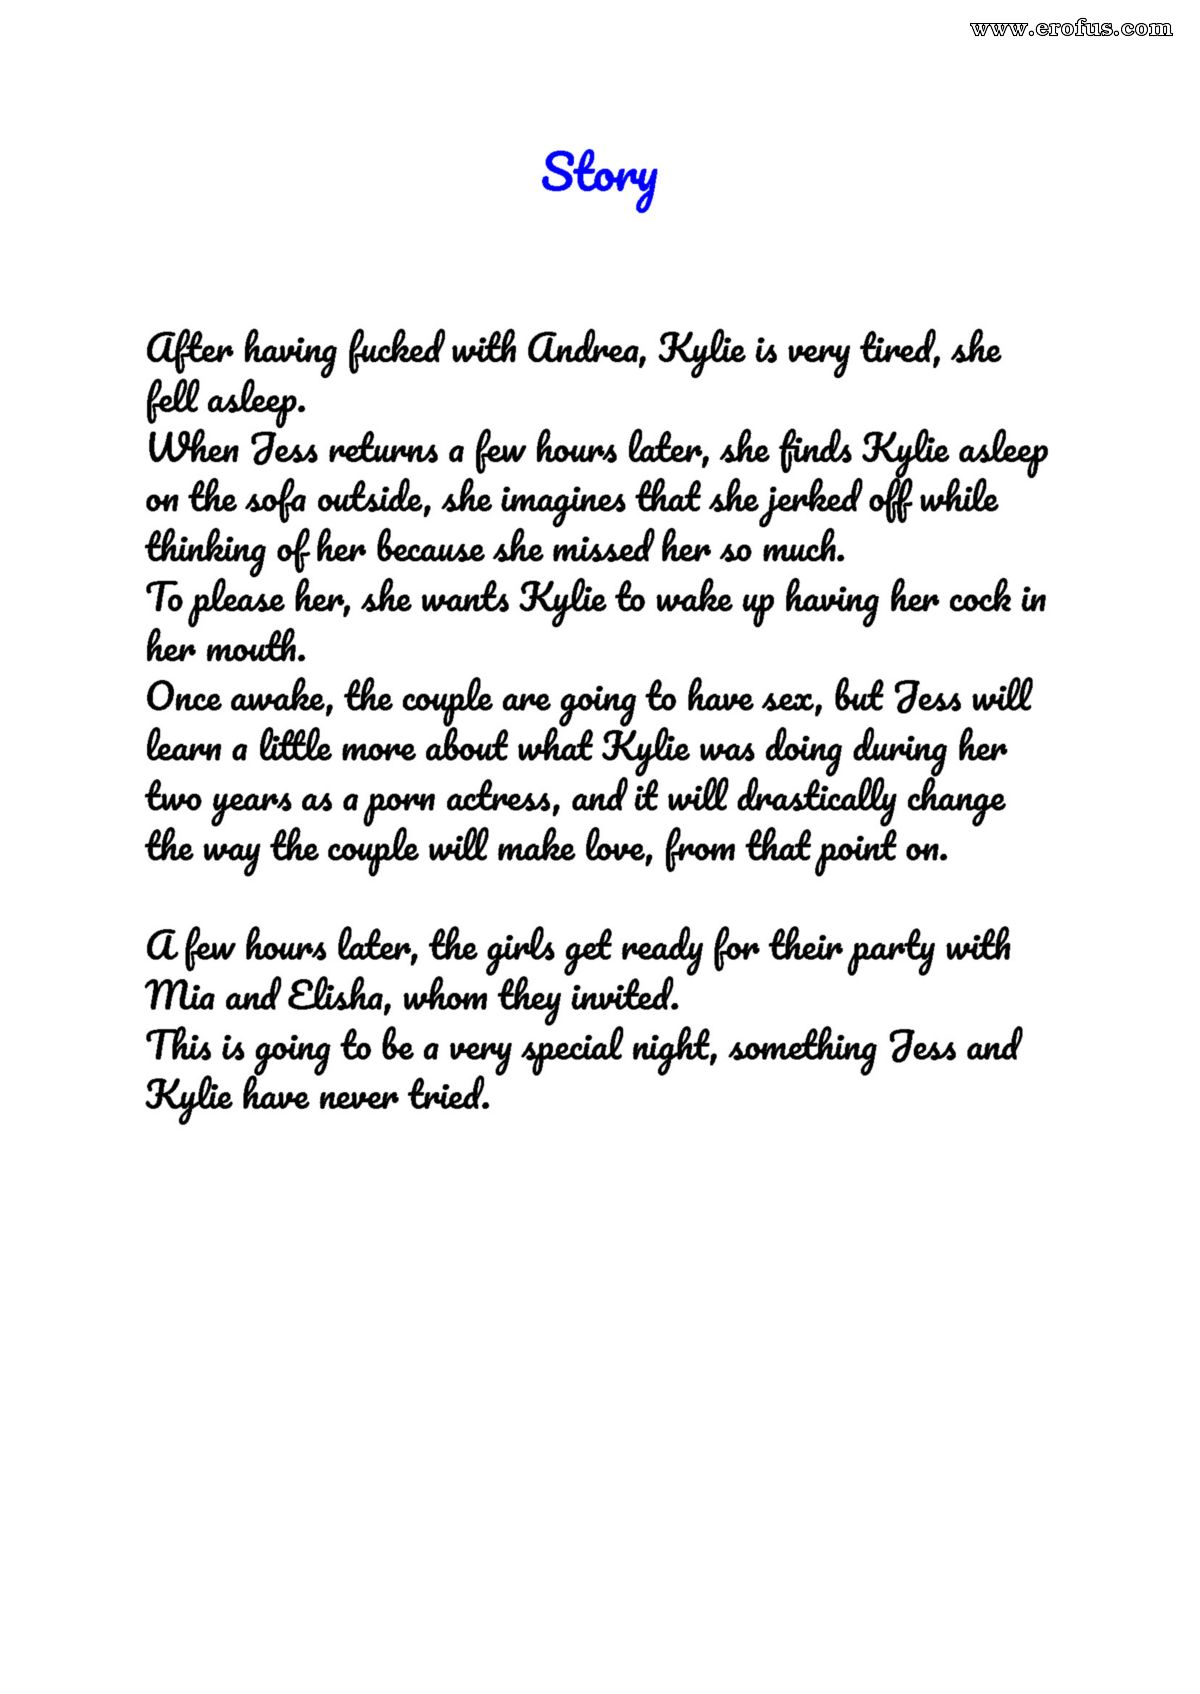 www.erofus.com
Story
After having fucked with Andrea, Kylie is very tired, she
fell asleep.
When Jess returns a few hours later, she finds Kylie asleep
on the sofa outside, she imagines that she jerked off while
thinking of her because she missed her so much.
To please her, she wants Kylie to wake up having her cock in
her mouth.
Once awake, the couple are going to have sex, but Jess will
learn a little more about what Kylie was doing during her
two years as a porn actress, and it will drastically change
the way the couple will make love, from that point on.
A few hours later, the girls get ready for their party with
Mia and Elisha, whom they invited.
This is going to be a very special night, something Jess and
Kylie have never tried.